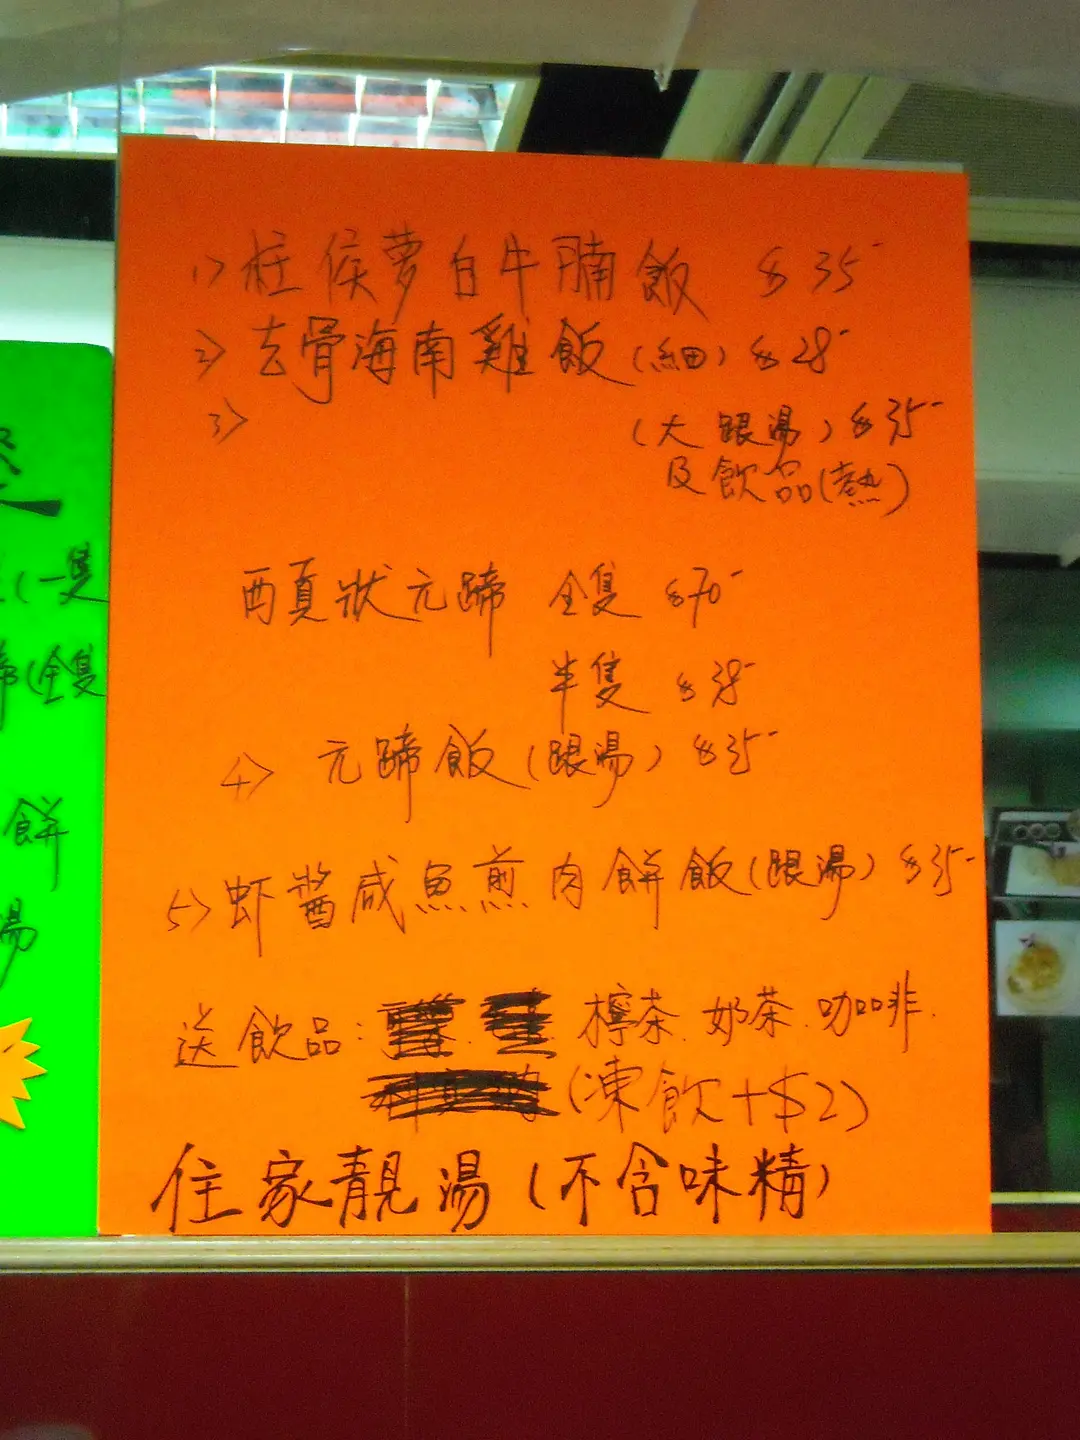 1) 柱侯萝白牛腩飯 $35-
2) 去骨海南雞飯(細) $28-
3) (大 跟湯) $35-
及飲品(熱)
西頁狀元蹄 全隻 $70-
半隻 $38-
4) 元蹄飯(跟湯) $35-
5) 虾醬咸魚煎肉餅飯(跟湯) $35-
送飲品: 檸茶.奶茶.咖啡.
(凍飲+$2)
住家靚湯(不含味精)
(一隻
(全隻
餅
湯